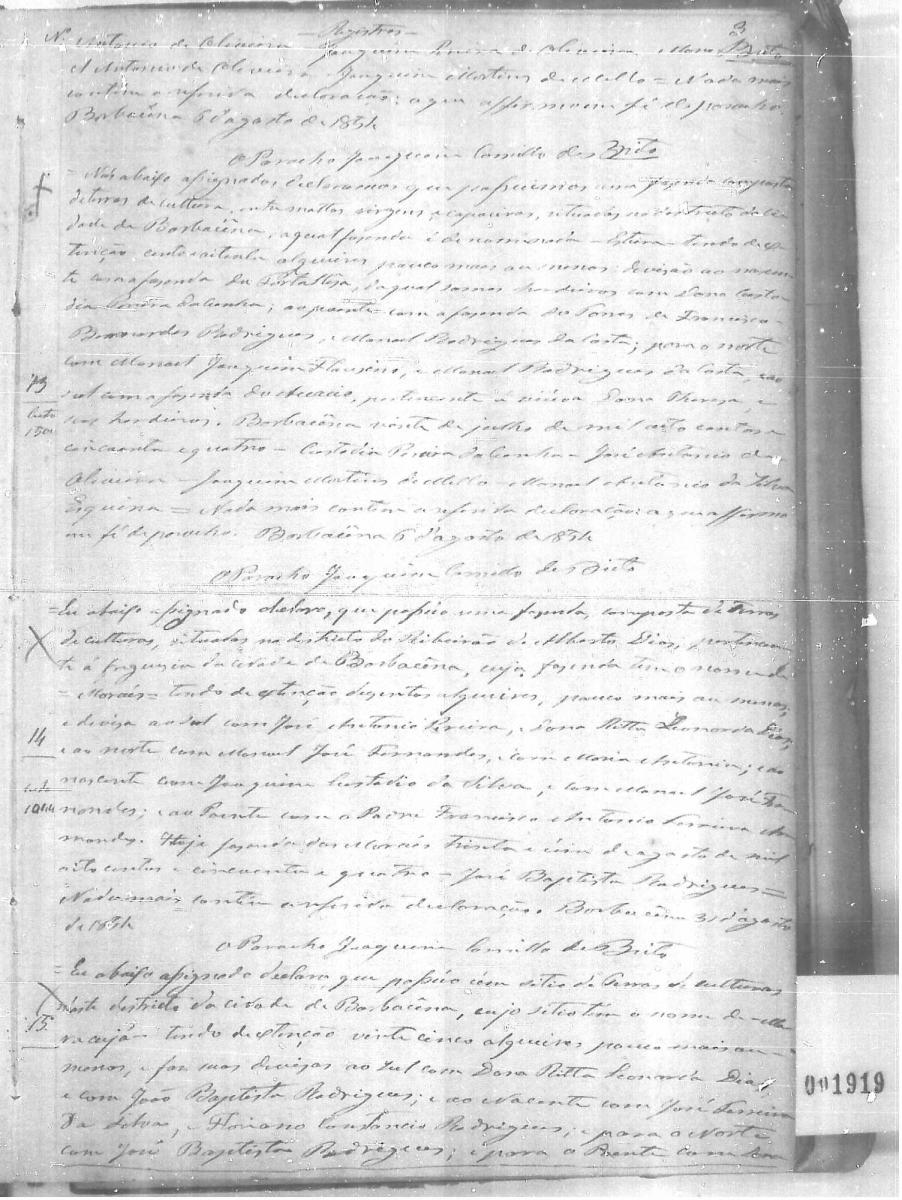 Registros 3
Nos Antonio de Oliveira Joaquim Pereira de Oliveira Brito
Antonio de Oliveira Joaquim Martins de Mello = Nada mais
contem a referida declaração; a que affirmo em fé de parocho.
Barbacêna 6 d'agosto de 1854
O Parocho Joaquim Camillo de Brito
= Nós abaixo assignados declaramos que possuimos uma fazenda composta
de terras de cultura, entre mattos virgens, e capoeiras, situadas no districto da Ci-
dade de Barbacêna, a qual fazenda é denominada tendo de ex-
tenção alqueires pouco mais ou menos: divisão ao nascen-
te com a fazenda da Fortalêza, da qual somos herdeiros com Dona Custo-
dia Pereira da Cunha; ao poente com a fazenda de Francisco
Bernardes Rodrigues, e Manoel Rodrigues da Costa; para o norte
com Manoel Joaquim e Manoel Rodrigues da Costa, e ao
13 sul com a fazenda do pertencente a viuva Dona Thereza e
seus herdeiros. Barbacêna vinte de julho de mil oito centos e
cincoenta e quatro - Custodia Pereira da Cunha - José Antonio de
Oliveira - Joaquim Martins de Mello - Manoel Antonio da Silva
Esquina = Nada mais contem a referida declaração: a que affirmo
em fé de parocho. Barbacêna 6 d'agosto de 1854
O Parocho Joaquim Camillo de Brito
= Eu abaixo assignado declaro, que possúo uma fazenda, composta de terras
de culturas, situadas no districto do Ribeirão de Alberto Dias, pertencen-
te á freguezia da cidade de Barbacêna, cuja fazenda tem o nome de
= Moraes = tendo de extenção dusentos alqueires, pouco mais ou menos;
e divisa ao sul com José Antonio Pereira, e Dona Ritta Leonarda Dias,
14 e ao norte com Manoel José Fernandes, e com Maria Antonia; e ao
nascente com Joaquim Custodio da Silva, e com Manoel José Fer-
nandes; e ao Poente com o Padre Francisco Antonio Ferreira Ar-
monde. Hoje fazenda dos Moraes trinta e um de agosto de mil
oito centos e cincoenta e quatro - José Baptista Rodrigues =
Nada mais contem a referida declaração. Barbacêna 31 d'agosto
de 1854
O Parocho Joaquim Camillo de Brito
= Eu abaixo assignado declaro que possúo um sitio de terras de culturas
15 neste districto da cidade de Barbacêna, cujo sitio tem o nome de - Ma-
racujá - tendo de extenção vinte cinco alqueires pouco mais ou
menos, e faz suas divisas ao sul com Dona Ritta Leonarda Dias,
e com João Baptista Rodrigues; e ao Nascente com José Ferreira
Da Silva, e Floriano Constancio Rodrigues; e para o Norte
com José Baptista Rodrigues; e para o Poente com
001919